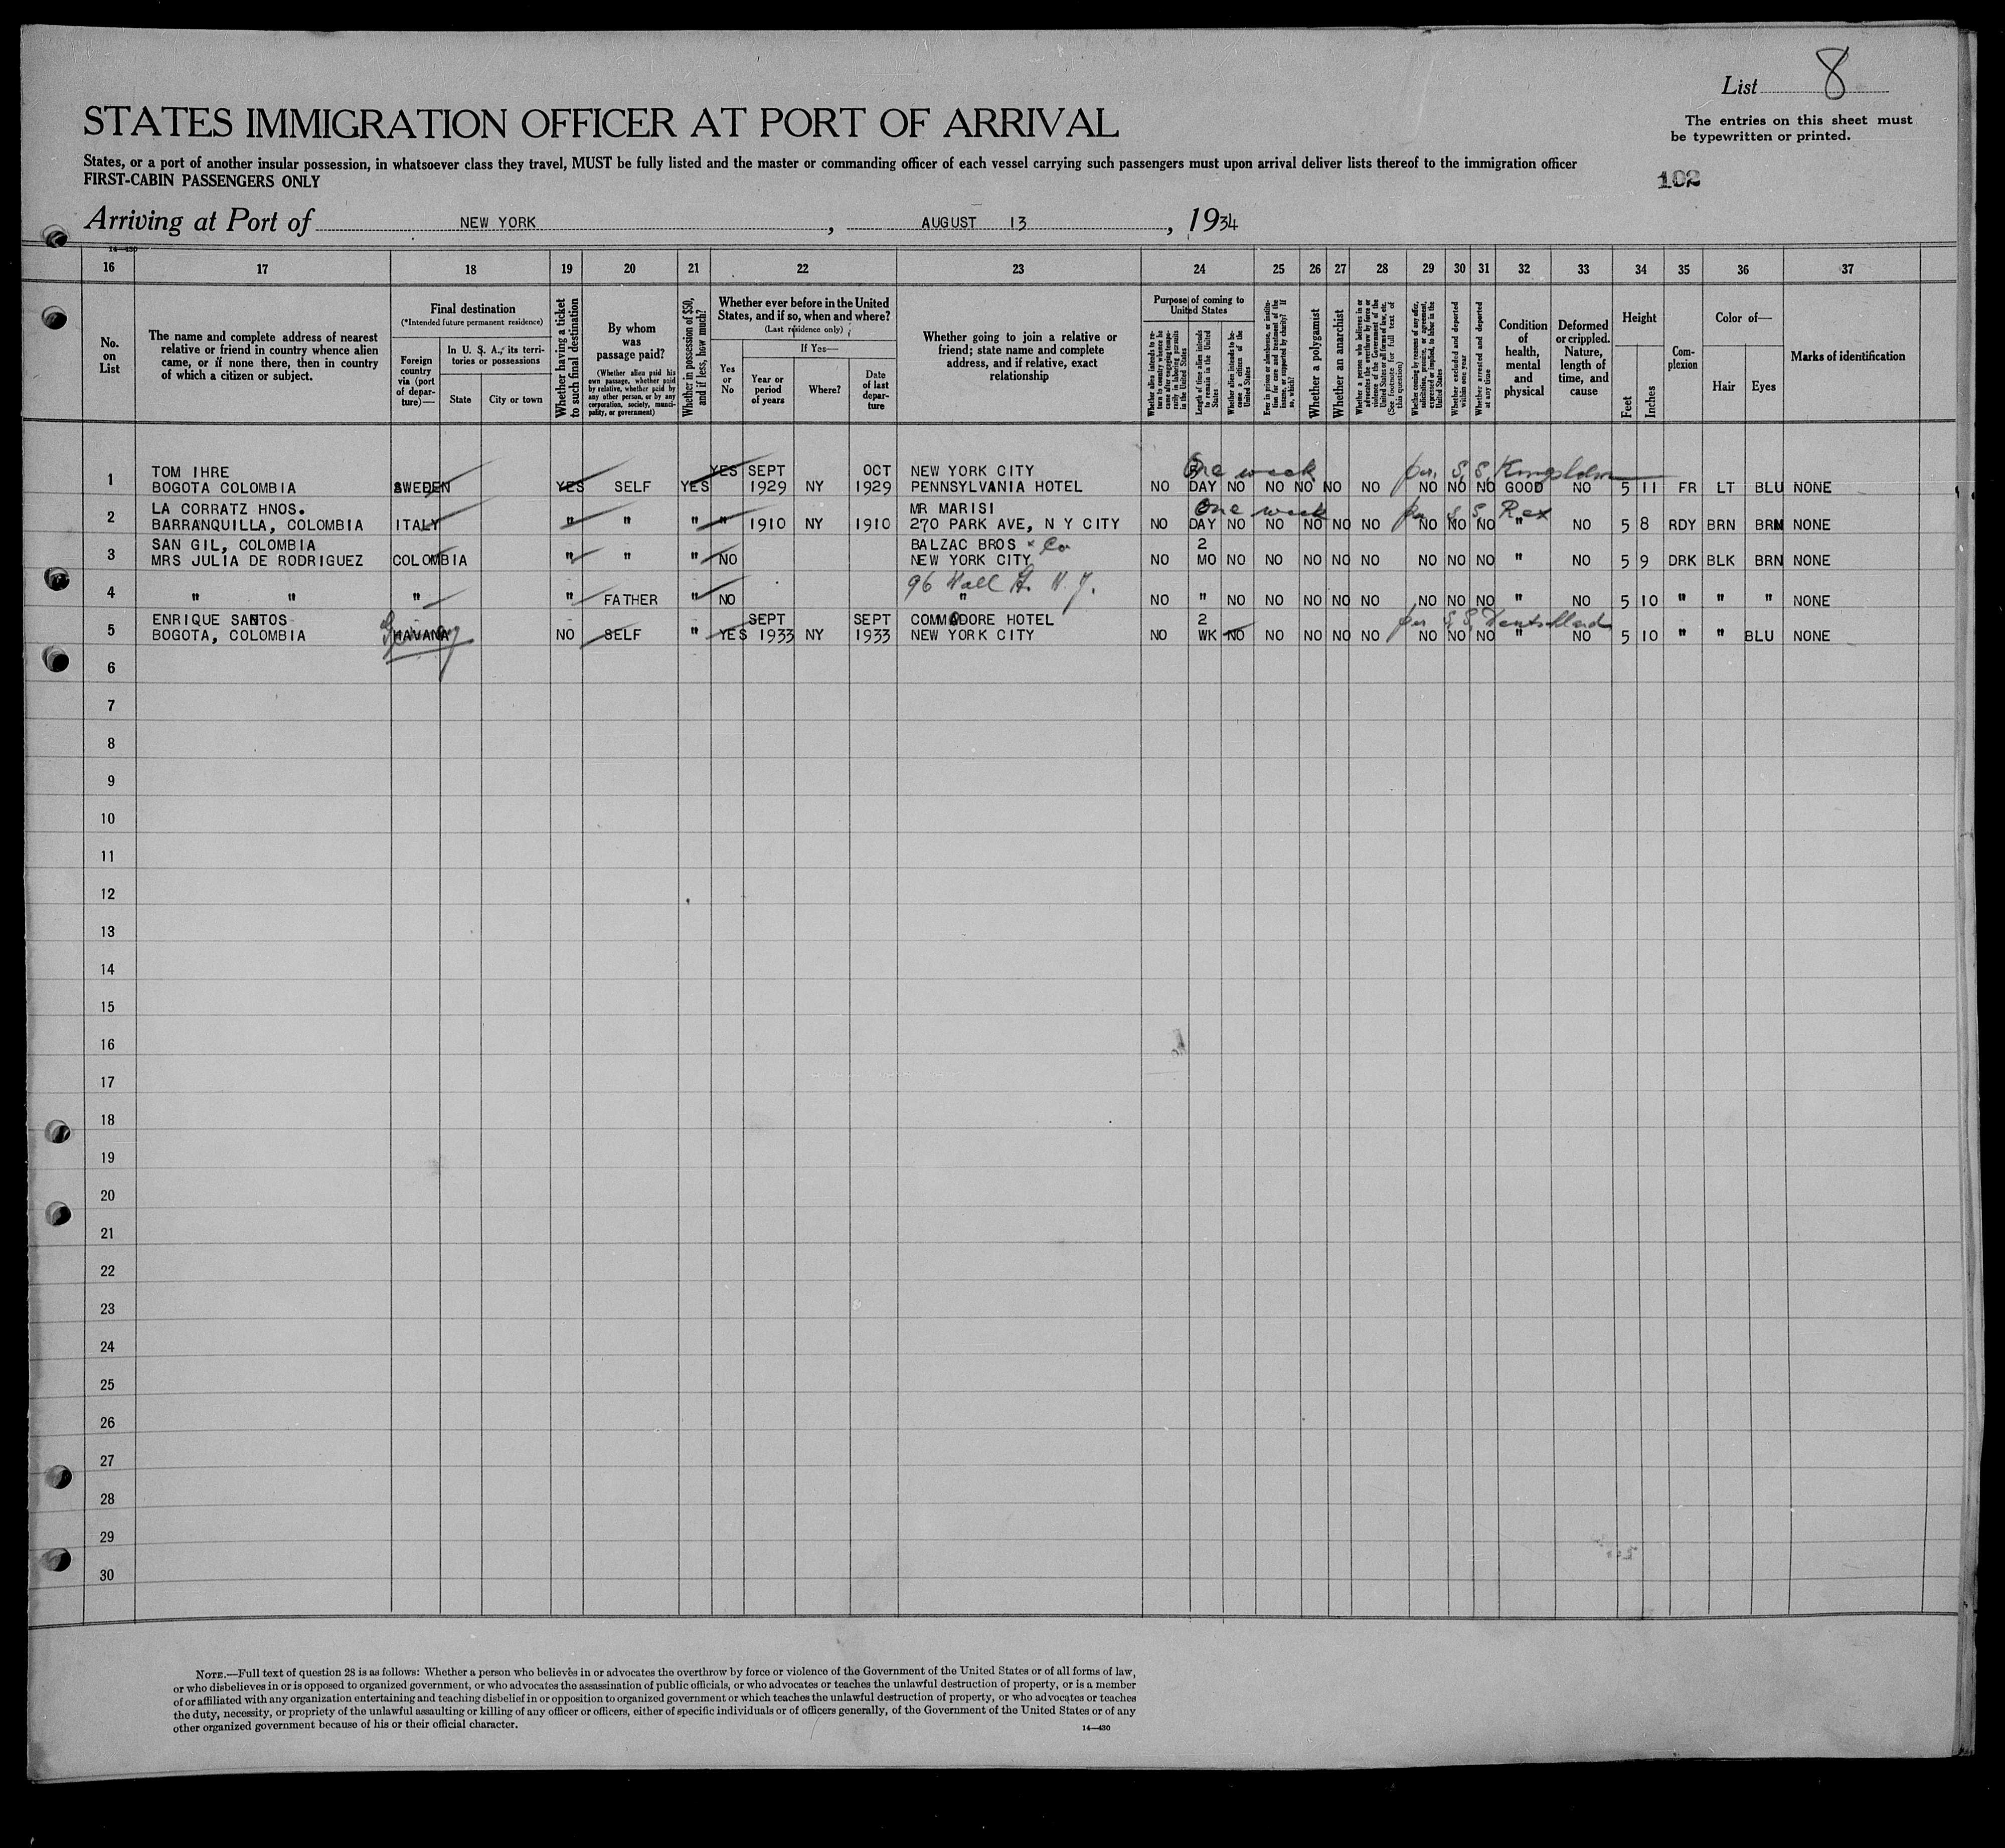 List 8
STATES IMMIGRATION OFFICER AT PORT OF ARRIVAL
The entries on this sheet must
be typewritten or printed.
States, or a port of another insular possession, in whatsoever class they travel, MUST be fully listed and the master or commanding officer of each vessel carrying such passengers must upon arrival deliver lists thereof to the immigration officer
FIRST-CABIN PASSENGERS ONLY
102
Arriving at Port of NEW YORK, AUGUST 13, 1934
14—430
16 17 18 19 20 21 22 23 24 25 26 27 28 29 30 31 32 33 34 35 36 37
No. on List
The name and complete address of nearest relative or friend in country whence alien came, or if none there, then in country of which a citizen or subject.
Final destination
(*Intended future permanent residence)
Foreign country via (port of departure)—
In U. S. A., its territories or possessions
State
City or town
Whether having a ticket to such final destination
By whom was passage paid?
(Whether alien paid his own passage, whether paid by relative, whether paid by any other person, or by any corporation, society, municipality, or government)
Whether in possession of $50, and if less, how much?
Whether ever before in the United States, and if so, when and where?
(Last residence only)
Yes or No
If Yes—
Year or period of years
Where?
Date of last departure
Whether going to join a relative or friend; state name and complete address, and if relative, exact relationship
Purpose of coming to United States
Whether alien intends to return to country whence he came after engaging temporarily in laboring pursuits in the United States
Length of time alien intends to remain in the United States
Whether alien intends to become a citizen of the United States
Ever in prison or almshouse, or institution for care and treatment of the insane, or supported by charity? If so, which?
Whether a polygamist
Whether an anarchist
Whether a person who believes in or advocates the overthrow by force or violence of the Government of the United States or all forms of law, etc. (See footnote for full text of this question)
Whether coming by reasons of any offer, solicitation, promise, or agreement, expressed or implied, to labor in the United States
Whether excluded and deported within one year
Whether arrested and deported at any time
Condition of health, mental and physical
Deformed or crippled. Nature, length of time, and cause
Height
Feet
Inches
Complexion
Color of—
Hair
Eyes
Marks of identification
TOM IHRE YES SEPT OCT NEW YORK CITY One week per S.S.
1 BOGOTA COLOMBIA SWEDEN YES SELF YES 1929 NY 1929 PENNSYLVANIA HOTEL NO DAY NO NO NO NO NO NO NO NO GOOD NO 5 11 FR LT BLU NONE
LA CORRATZ HNOS. MR MARISI One week per S.S. Rex
2 BARRANQUILLA, COLOMBIA ITALY " " " " 1910 NY 1910 270 PARK AVE, N Y CITY NO DAY NO NO NO NO NO NO NO NO " NO 5 8 RDY BRN BRN NONE
SAN GIL, COLOMBIA BALZAC BROS & Co 2
3 MRS JULIA DE RODRIGUEZ COLOMBIA " " " NO NEW YORK CITY NO MO NO NO NO NO NO NO NO NO " NO 5 9 DRK BLK BRN NONE
96 Wall St. N.Y.
4 " " " " FATHER " NO " NO " NO NO NO NO NO NO NO NO " NO 5 10 " " " NONE
ENRIQUE SANTOS SEPT SEPT COMMODORE HOTEL 2 per S.S. Deutschland
5 BOGOTA, COLOMBIA HAVANA Germany NO SELF " YES 1933 NY 1933 NEW YORK CITY NO WK NO NO NO NO NO NO NO NO " NO 5 10 " " BLU NONE
6
7
8
9
10
11
12
13
14
15
16
17
18
19
20
21
22
23
24
25
26
27
28
29
30
NOTE.—Full text of question 28 is as follows: Whether a person who believes in or advocates the overthrow by force or violence of the Government of the United States or of all forms of law,
or who disbelieves in or is opposed to organized government, or who advocates the assassination of public officials, or who advocates or teaches the unlawful destruction of property, or is a member
of or affiliated with any organization entertaining and teaching disbelief in or opposition to organized government or which teaches the unlawful destruction of property, or who advocates or teaches
the duty, necessity, or propriety of the unlawful assaulting or killing of any officer or officers, either of specific individuals or of officers generally, of the Government of the United States or of any
other organized government because of his or their official character.
14—430